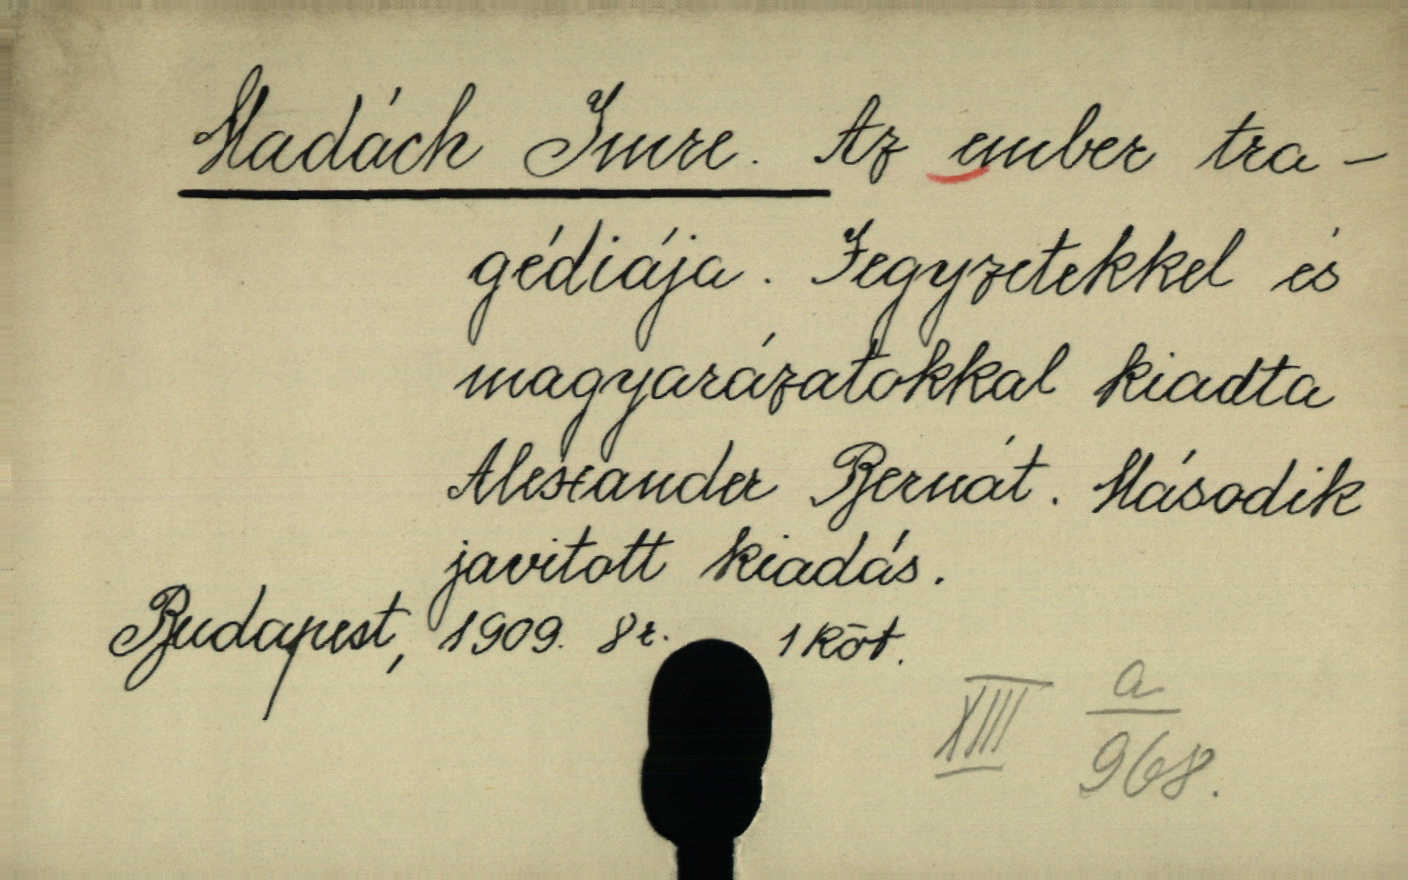 Madách Imre. Az ember tra-
gédiája. Jegyzetekkel és
magyarázatokkal kiadta
Alexander Bernát. Második
javitott kiadás.
Budapest, 1909. 8r. 1 köt.
XIII a/968.